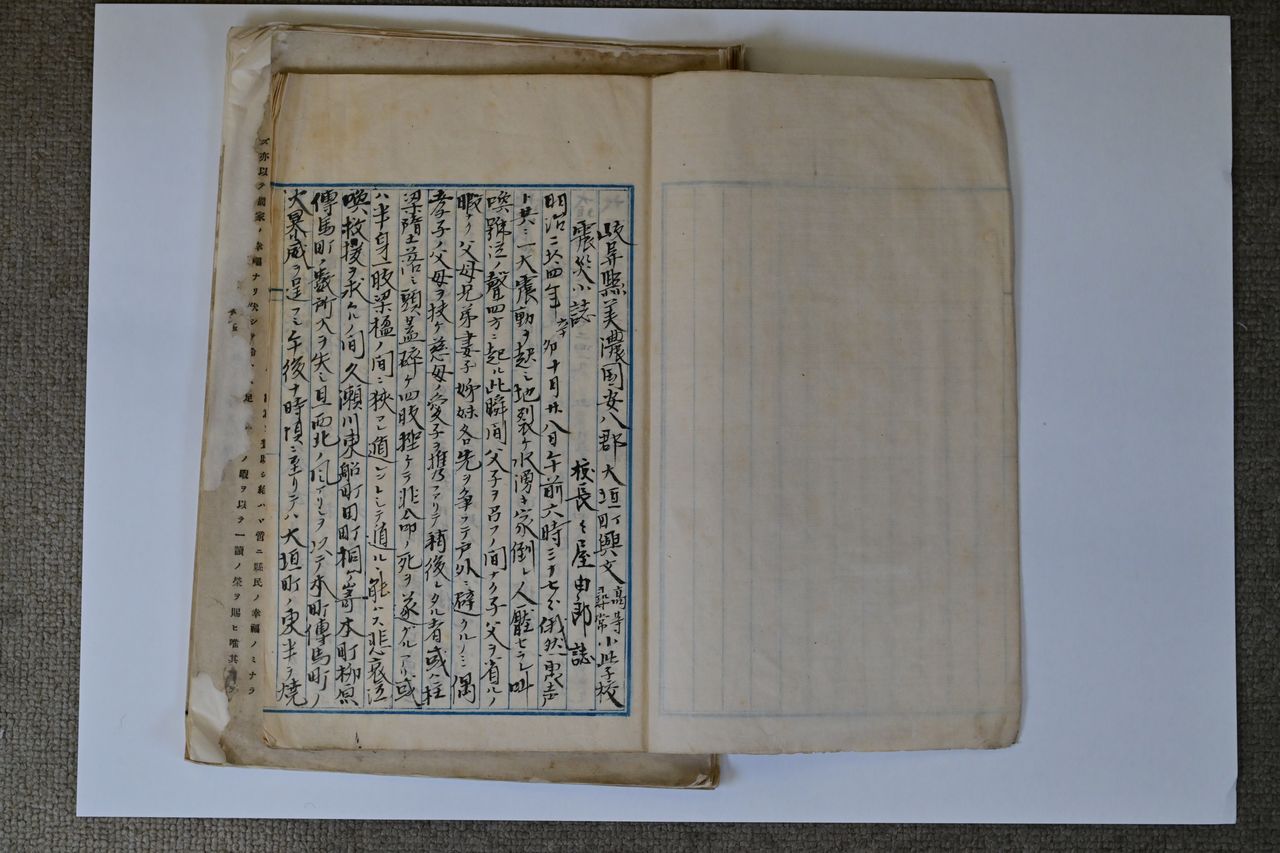 岐阜縣美濃国安八郡大垣町興文高等尋常小学校
震災小誌
校長 屋由郎誌
明治二十四年十月廿八日午前六時三十七分俄然轟声
ト共ニ一大震動ヲ起シ地裂ケ水湧キ家倒レ人壓セラレ叫
喚號泣ノ聲四方ニ起ル此瞬間父子ヲ呂フノ間ナク子父ヲ省ルノ
暇ナク父母兄弟妻子姊妹各先ヲ争フテ戸外ニ避クルノミ偶
孝子ノ父母ヲ扶ケ慈母ノ愛子ヲ携フアリテ稍後レタル者或ハ柱
梁墮落シ頭蓋碎ケ四肢挫ケテ非命ノ死ヲ遂グルアリ或
ハ半身一肢梁楹ノ間ニ狭マレ遁レントシテ遁ル能ハス悲哀泣
喚救援ヲ求ムルノ間久瀬川東船町田町桐ヶ嵜本町柳原
傳馬町ノ数所火ヲ失シ且西北ノ風アリシヲ以テ本町傳馬町ノ
火暴威ヲ逞フシ午後十時頃ニ至リテハ大垣町ノ東半ヲ焼
ズ亦以テ國家ノ幸福ナリ
給ハヾ啻ニ縣民ノ幸福ノミナラ
ノ暇ヲ以テ一讀ノ榮ヲ賜ヒ